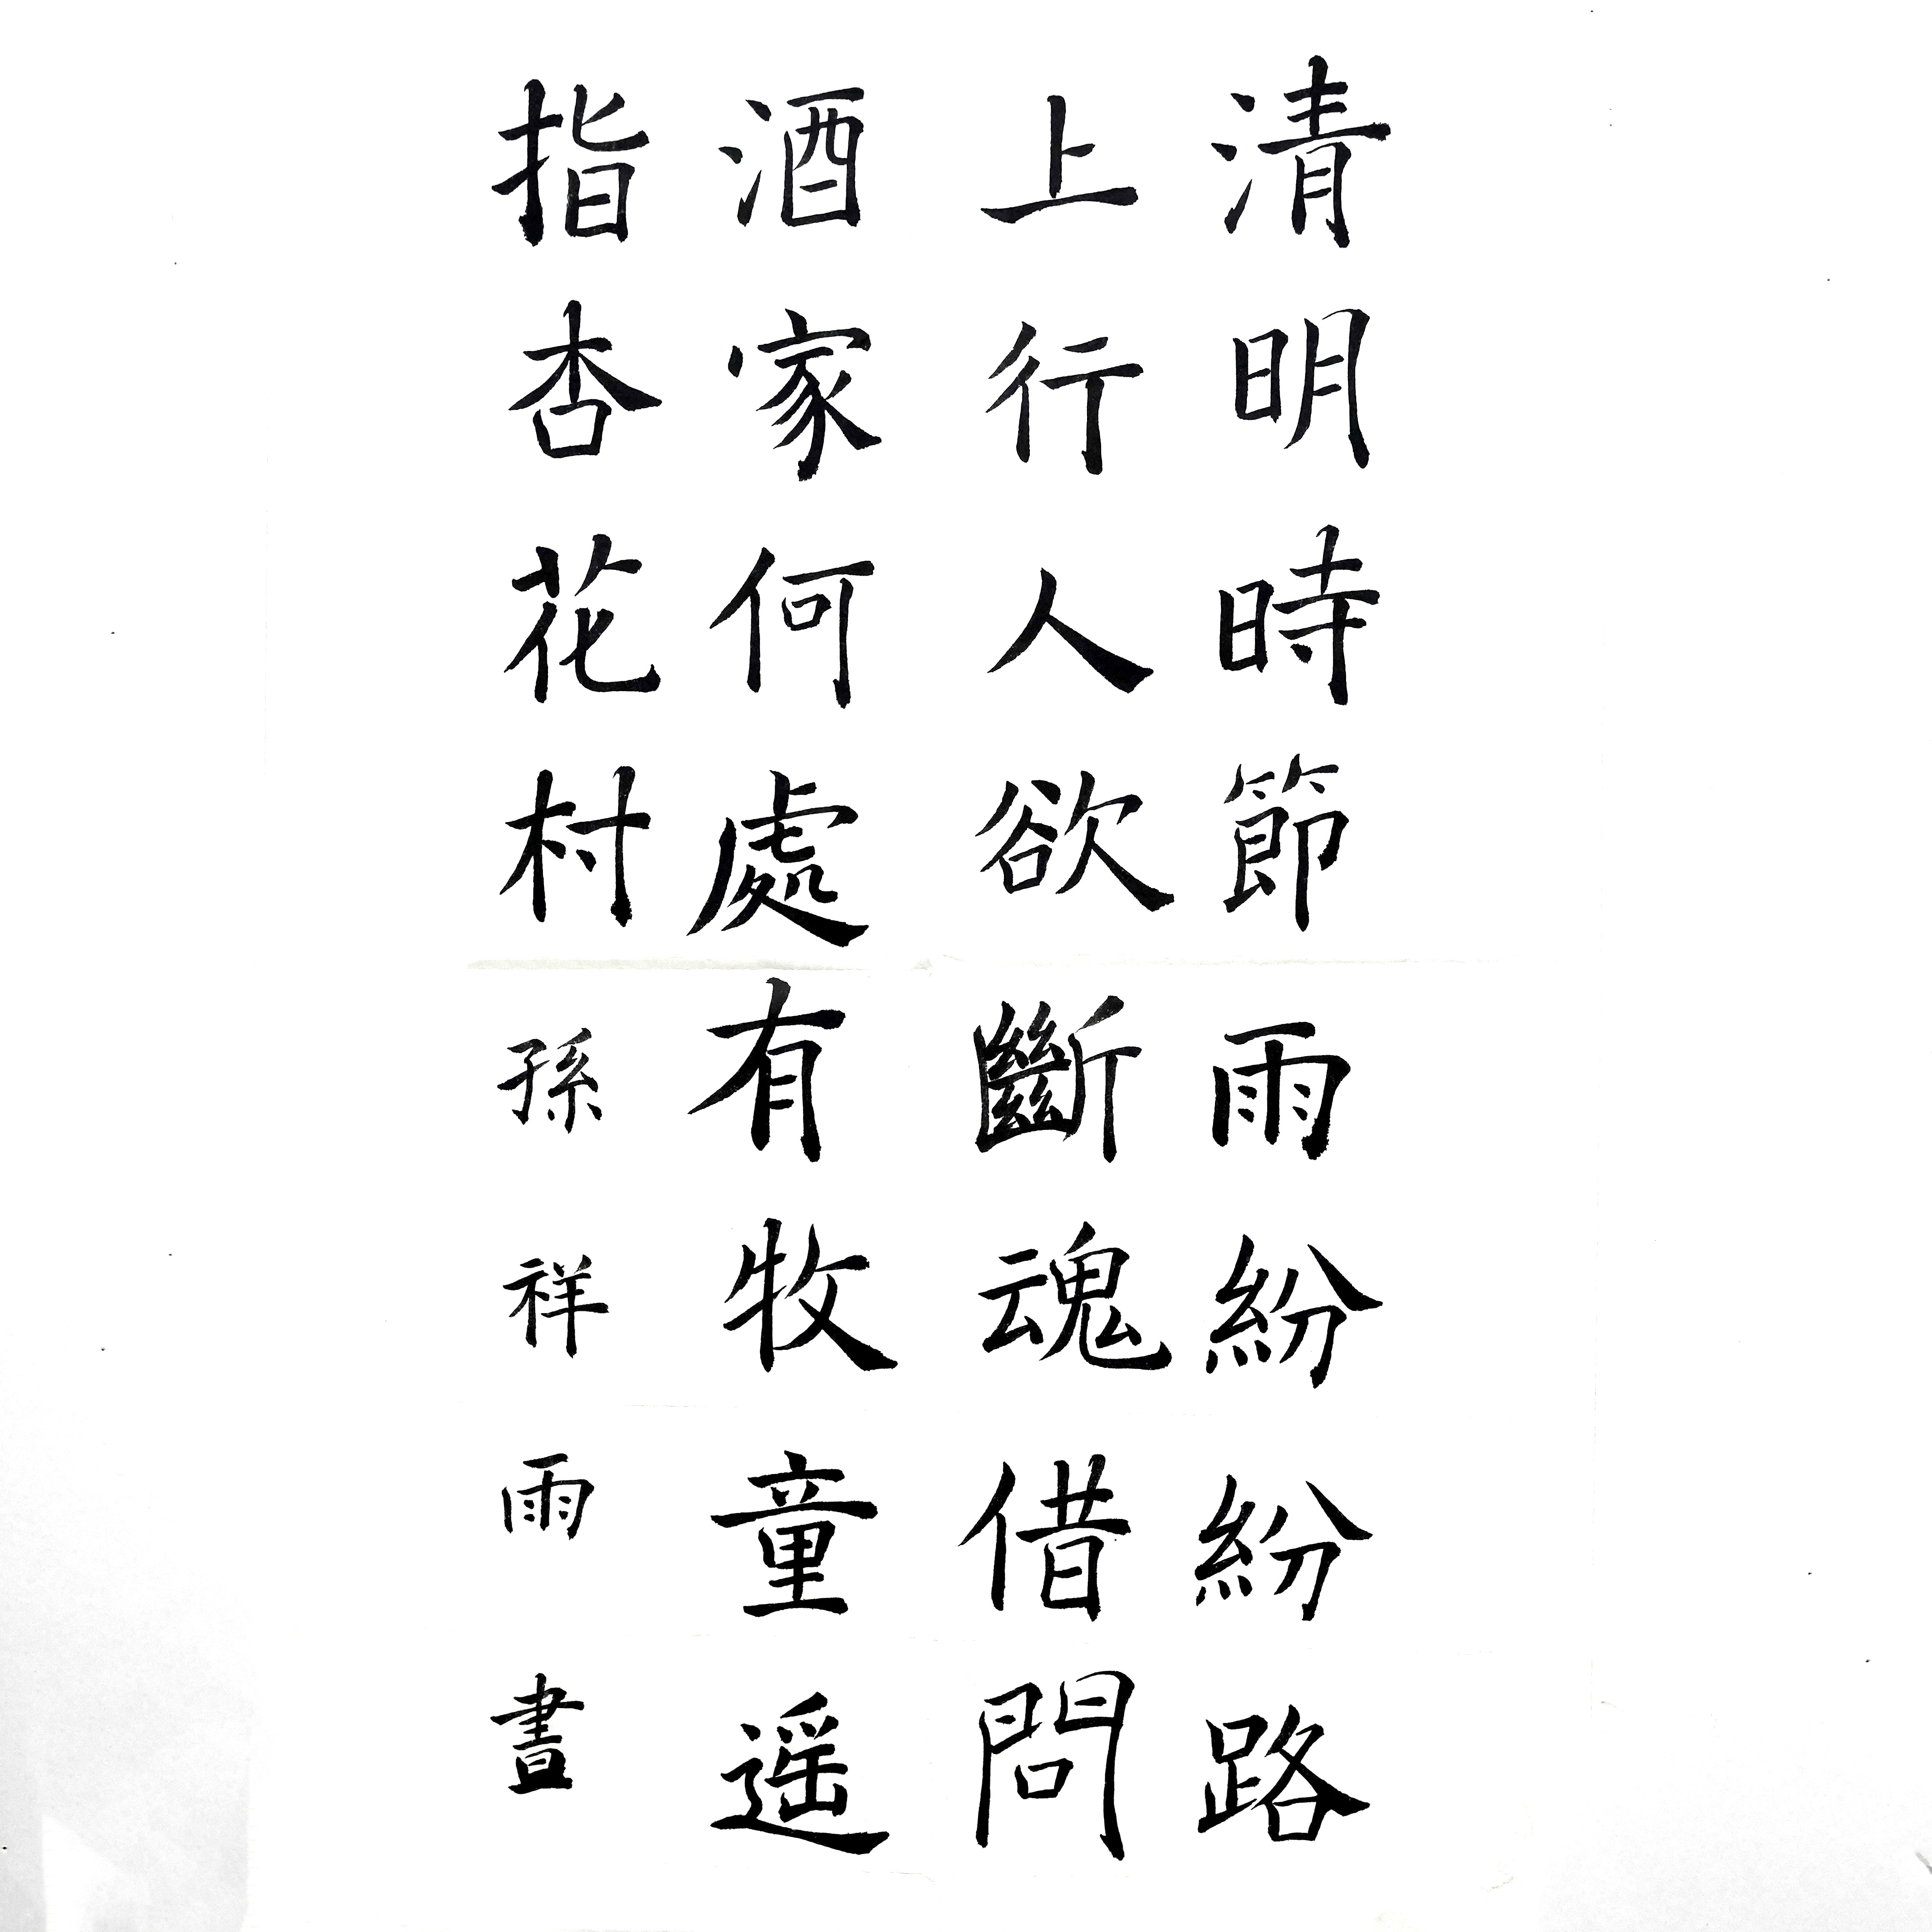 清明時節雨紛紛路
上行人欲斷魂借問
酒家何處有牧童遥
指杏花村孫祥雨書